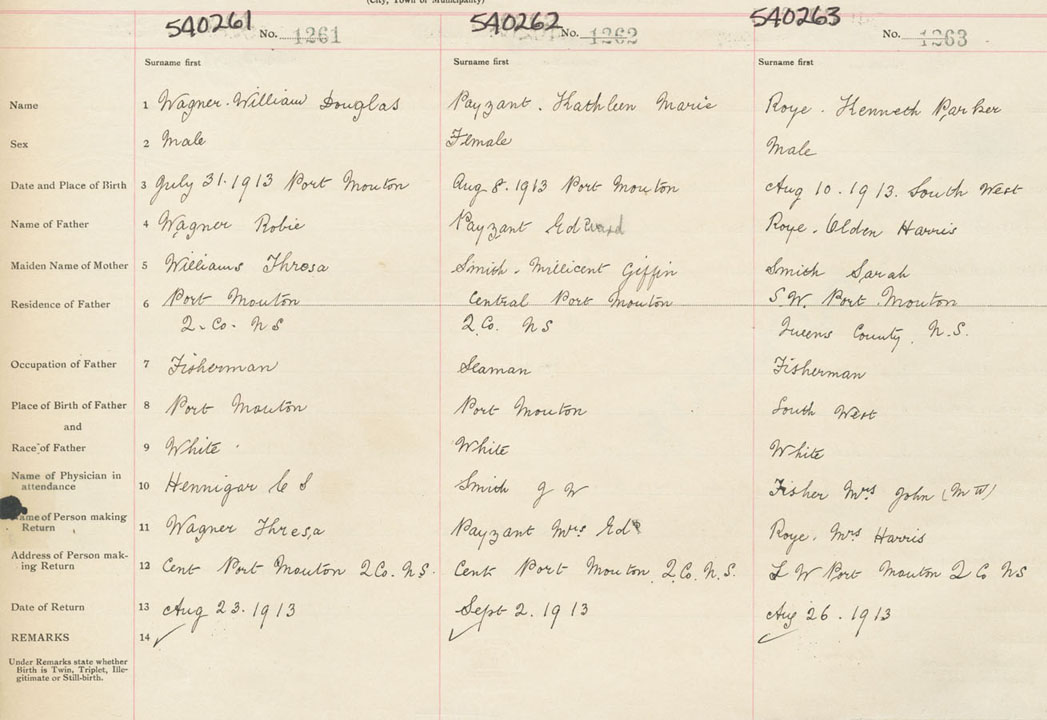 (City, Town or Municipality)
540261 No. 1261 540262 No. 1262 540263 No. 1263
Surname first Surname first Surname first
Name 1 Wagner. William Douglas Payzant. Kathleen Marie Roye. Kenneth Parker
Sex 2 Male Female Male
Date and Place of Birth 3 July 31. 1913 Port Mouton Aug 8. 1913 Port Mouton Aug 10. 1913. South West
Name of Father 4 Wagner Robie Payzant Edward Roye. Olden Harris
Maiden Name of Mother 5 Williams Thresa Smith. Millicent Giffin Smith Sarah
Residence of Father 6 Port Mouton Central Port Mouton S.W. Port Mouton
Q. Co. N S Q Co. N S Queens County, N.S.
Occupation of Father 7 Fisherman Seaman Fisherman
Place of Birth of Father 8 Port Mouton Port Mouton South West
and
Race of Father 9 White White White
Name of Physician in
attendance 10 Hennigar C S Smith J W Fisher Mrs John (M W)
Name of Person making
Return 11 Wagner Thresa Payzant Mrs Ed Roye. Mrs Harris
Address of Person mak-
ing Return 12 Cent Port Mouton Q Co. N S. Cent Port Mouton, Q. Co. N. S. S W Port Mouton Q Co NS
Date of Return 13 Aug 23. 1913 Sept 2. 1913 Aug 26. 1913
REMARKS 14
Under Remarks state whether
Birth is Twin, Triplet, Ille-
gitimate or Still-birth.